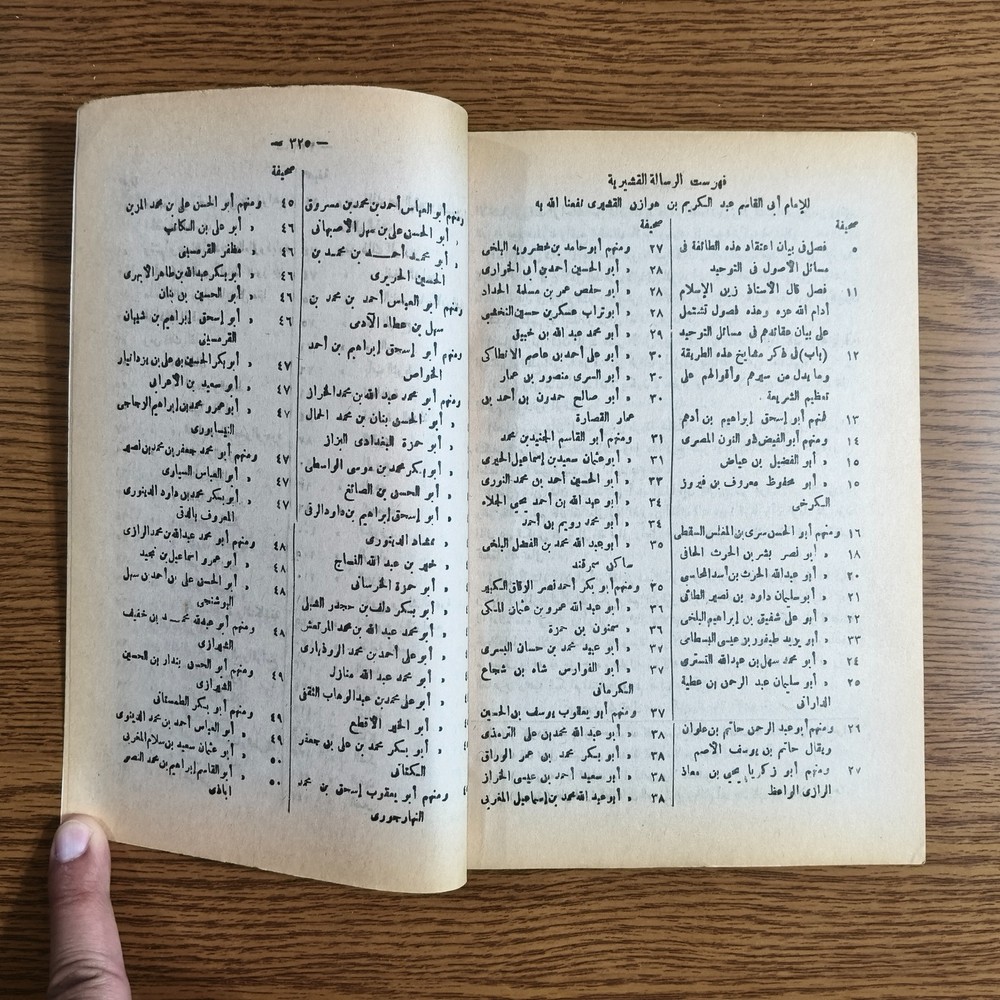 فهرست الرسالة القشيرية
للإمام أبى القاسم عبد الكريم بن هوازن القشيرى نفعنا الله به
صحيفة
٥ فصل فى بيان اعتقاد هذه الطائفة فى
مسائل الأصول فى التوحيد
١١ فصل قال الأستاذ زين الإسلام
أدام الله عزه وهذه فصول تشتمل
على بيان عقائدهم فى مسائل التوحيد
١٢ (باب) فى ذكر مشايخ هذه الطريقة
وما يدل من سيرهم وأقوالهم على
تعظيم الشريعة.
١٣ فمنهم أبو إسحق إبراهيم بن أدهم
١٤ ومنهم أبو الفيض ذو النون المصرى
١٥ د أبو الفضيل بن عياض
١٥ د أبو محفوظ معروف بن فيروز
الكرخى
١٦ ومنهم أبو الحسن سرى بن المغلس السقطى
١٨ د أبو نصر بشر بن الحرث الحافى
٢٠ د أبو عبد الله الحرث بن أسد المحاسبى
٢١ د أبو سليمان داود بن نصير الطائى
٢٢ د أبو على شقيق بن إبراهيم البلخى
٣٣ د أبو يزيد طيفور بن عيسى البسطامى
٢٤ د أبو محمد سهل بن عبد الله التسترى
٢٥ د أبو سليمان عبد الرحمن بن عطية
الدارانى
٢٦ ومنهم أبو عبد الرحمن حاتم بن علوان
ويقال حاتم بن يوسف الأصم
٢٧ ومنهم أبو زكريا يحيى بن معاذ
الرازى الواعظ
صحيفة
٢٧ ومنهم أبو حامد بن خضرويه البلخى
٢٨ د أبو الحسين أحمد بن أبى الحوارى
٢٨ د أبو حفص عمر بن مسلمة الحداد
٢٨ د أبو تراب عسكر بن حسين النخشبى
٢٩ د أبو محمد عبد الله بن خبيق
٣٠ د أبو على أحمد بن عاصم الانطاكى
٣٠ د أبو السرى منصور بن عمار
٣٠ د أبو صالح حمدون بن أحمد بن
عمار القصارة
٣١ ومنهم أبو القاسم الجنيد بن محمد
٣١ د أبو عثمان سعيد بن إسماعيل الحيرى
٣٣ د أبو الحسين أحمد بن محمد النورى
٣٤ د أبو عبد الله بن أحمد يحيى الجلاء
٣٤ د أبو محمد رويم بن أحمد
٣٥ د أبو عبد الله محمد بن الفضل البلخى
ساكن سمرقند
٣٥ ومنهم أبو بكر أحمد نصر الزقاق الكبير
٣٦ د أبو عبد الله عمرو بن عثمان المكى
٣٦ د سمنون بن حمزة
٣٧ د أبو عبيد محمد بن حسان البسرى
٣٧ د أبو الفوارس شاه بن شجاع
الكرمانى
٣٧ ومنهم أبو يعقوب يوسف بن الحسين
٣٨ د أبو عبد الله محمد بن على الترمذى
٣٨ د أبو بكر محمد بن عمر الوراق
٣٨ د أبو سعيد أحمد بن عيسى الخراز
٣٨ د أبو عبد الله محمد بن إسماعيل المغربى
— ٣٢٥ —
ومنهم أبو العباس أحمد بن محمد بن مسروق
د أبو الحسن على بن سهل الأصبهانى
د أبو محمد أحمد بن محمد بن
الحسين الحريرى
ومنهم أبو العباس أحمد بن محمد بن
سهل بن عطاء الآدى
ومنهم أبو إسحق إبراهيم بن أحمد
الخواص
ومنهم أبو محمد عبد الله بن محمد الخراز
د أبو الحسن بنان بن محمد الحمال
د أبو حمزة البغدادى البزاز
د أبو بكر محمد بن موسى الواسطى
د أبو الحسن بن الصائغ
د أبو إسحق إبراهيم بن داود الرقى
د ممشاد الدينورى
د خير بن عبد الله النساج
د أبو حمزة الخرسانى
د أبو بكر دلف بن جحدر الشبلى
د أبو محمد عبد الله بن محمد المرتعش
د أبو على أحمد بن محمد الروذبارى
د أبو محمد عبد الله منازل
د أبو على محمد بن عبد الوهاب الثقفى
د أبو الخير الأقطع
د أبو بكر محمد بن على بن جعفر
الكتانى
ومنهم أبو يعقوب إسحق بن محمد
النهارجورى
صحيفة
٤٥ ومنهم أبو الحسن على بن محمد المزين
٤٦ د أبو على بن الكاتب
٤٦ د مظفر القرمسينى
٤٦ د أبو بكر عبد الله بن طاهر الأبهرى
٤٦ د أبو الحسين بن بنان
٤٦ د أبو إسحق إبراهيم بن شيبان
القرمسينى
٤٧ د أبو بكر الحسين بن على بن يزدانيار
٤٧ د أبو سعيد بن الأعرابى
٤٧ د أبو عمرو محمد بن إبراهيم الزجاجى
النيسابورى
٤٧ ومنهم أبو محمد جعفر بن محمد بن نصير
٤٧ د أبو العباس السيارى
٤٧ د أبو بكر محمد بن داود الدينورى
المعروف بالدقى
٤٨ ومنهم أبو محمد عبد الله بن محمد الرازى
٤٨ د أبو عمرو اسماعيل بن نجيد
٤٨ د أبو الحسن على بن أحمد بن سهل
البوشنجى
٤٨ ومنهم أبو عبد الله محمد بن خفيف
الشيرازى
٤٩ ومنهم أبو الحسن بندار بن الحسين
الشيرازى
٤٩ ومنهم أبو بكر الطمستانى
٤٩ د أبو العباس أحمد بن محمد الدينورى
٥٠ د أبو عثمان سعيد بن سلام المغربى
٥٠ د أبو القاسم إبراهيم بن محمد النصر
اباذى